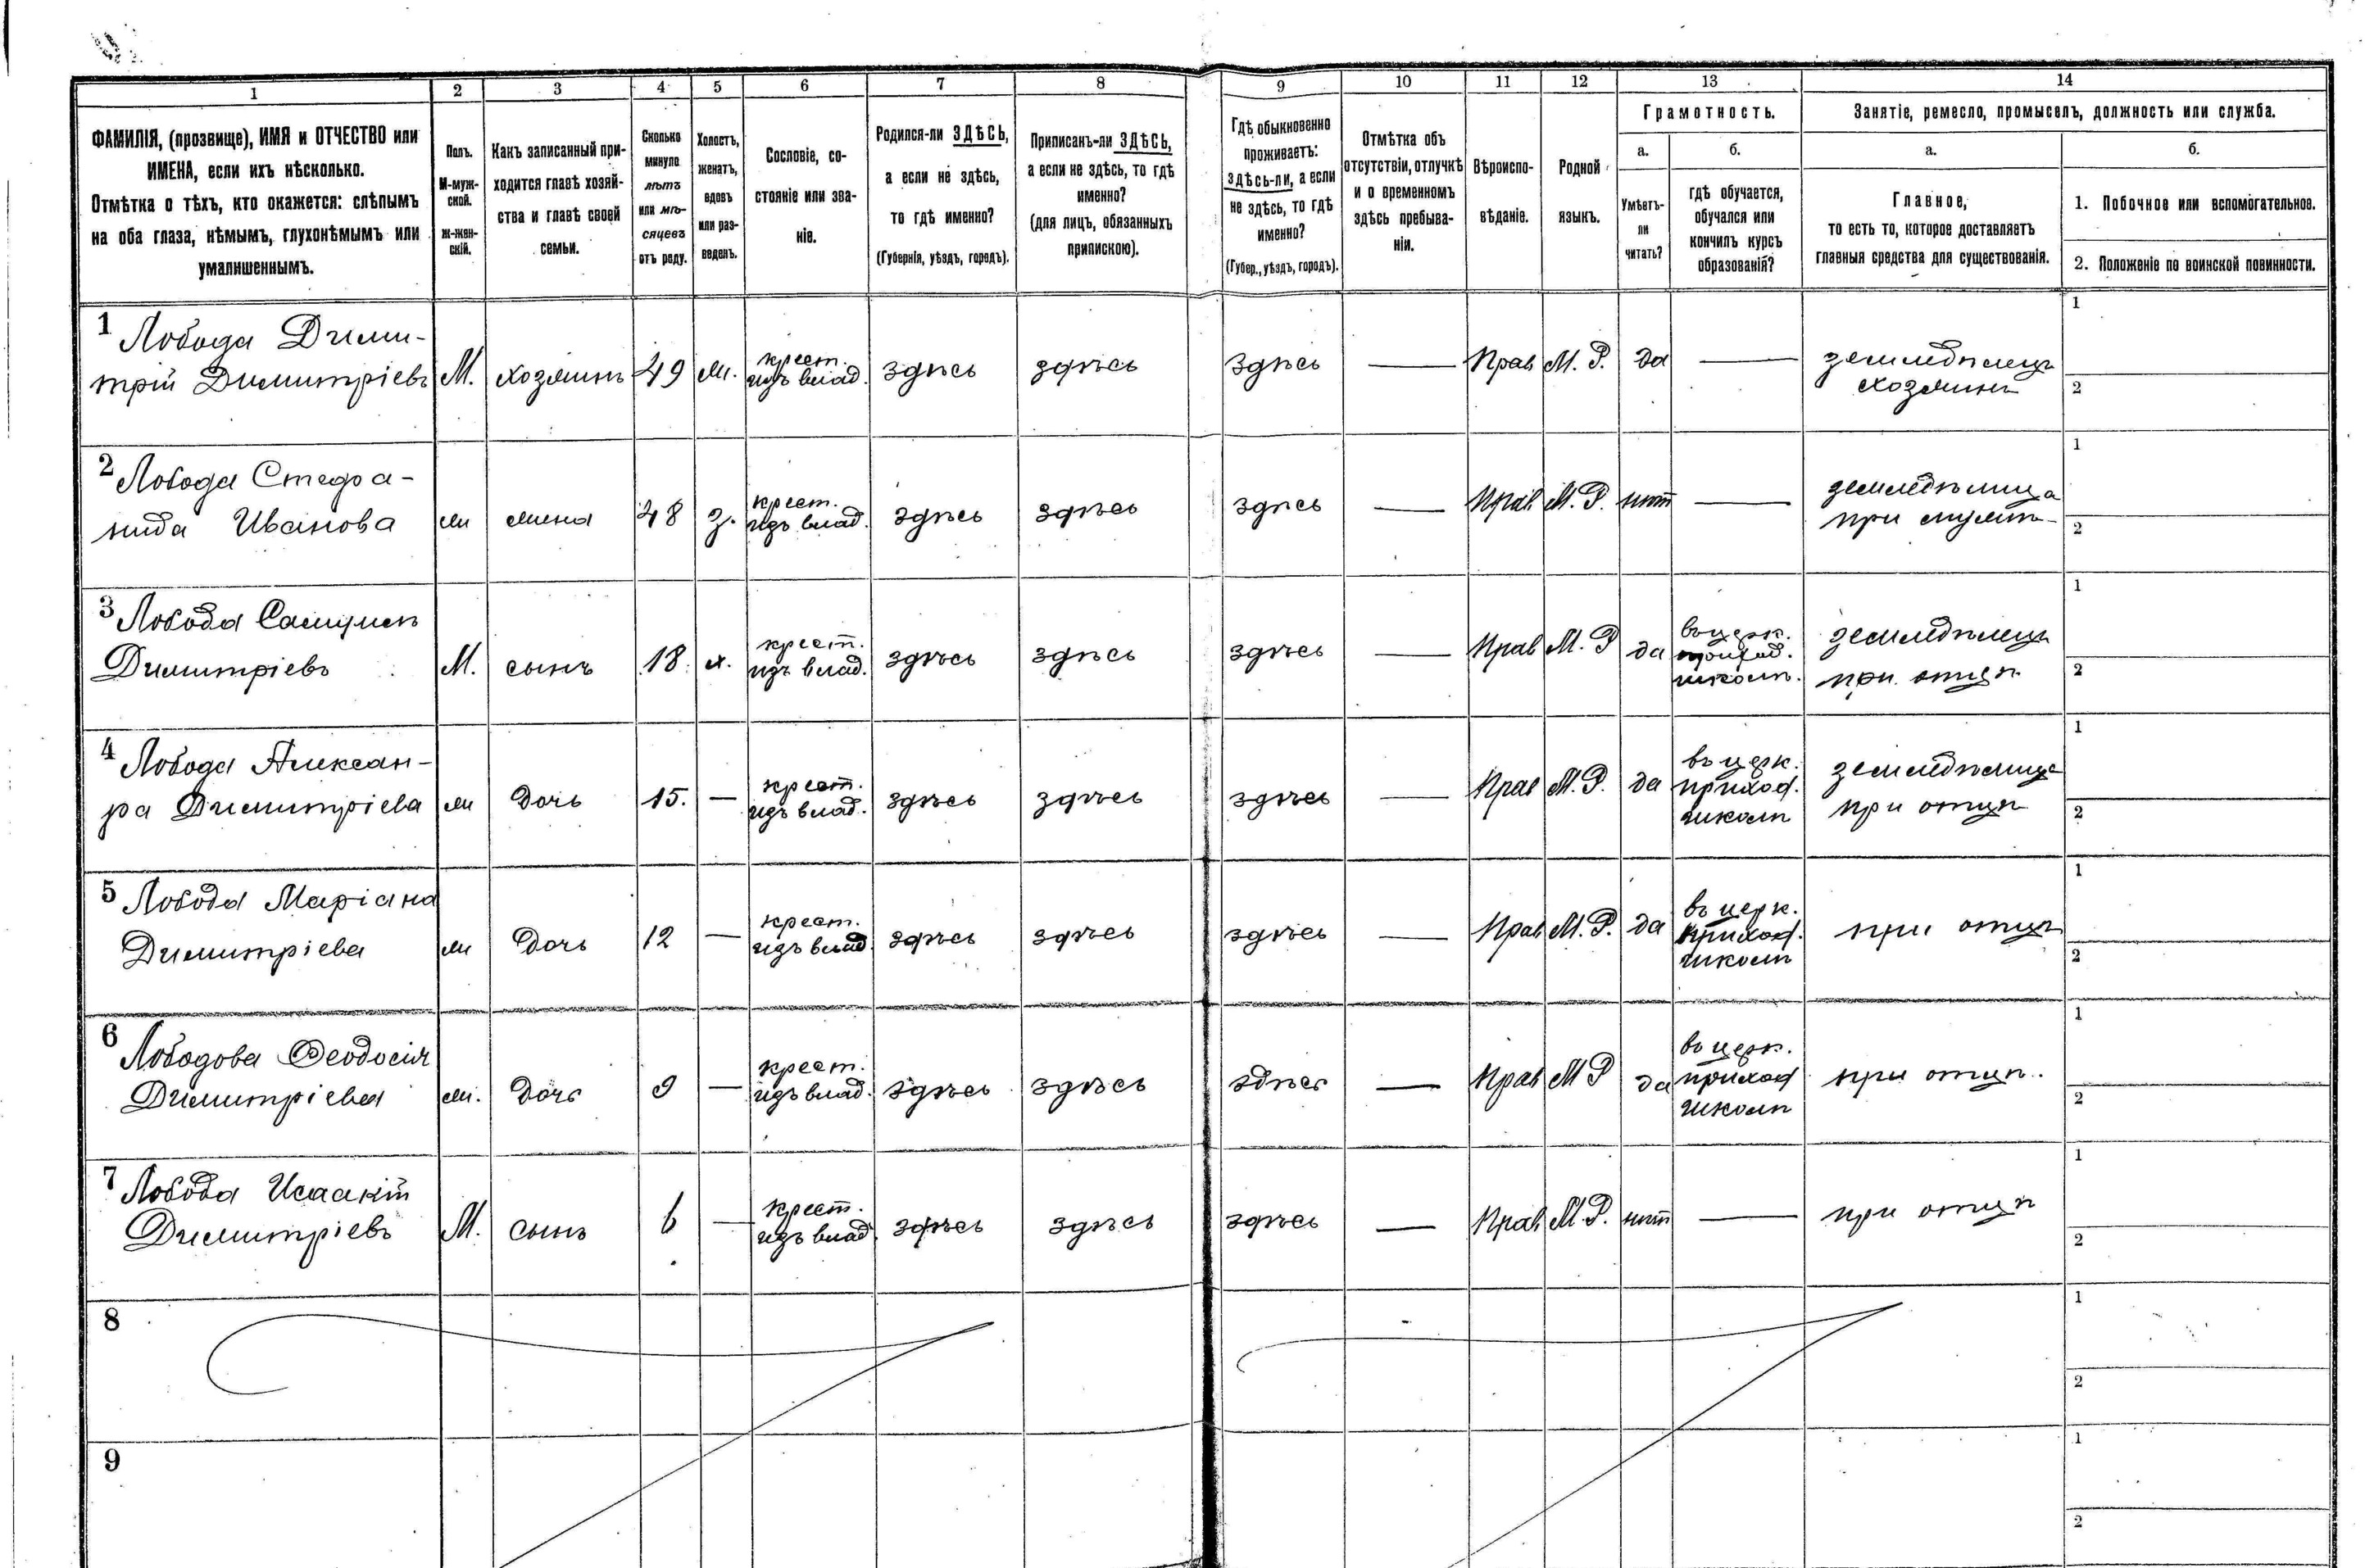 1 2 3 4 5 6 7 8 9 10 11 12 13 14
ФАМИЛІЯ, (прозвище), ИМЯ и ОТЧЕСТВО или
ИМЕНА, если ихъ нѣсколько.
Отмѣтка о тѣхъ, кто окажется: слѣпымъ
на оба глаза, нѣмымъ, глухонѣмымъ или
умалишеннымъ.
Полъ.
М-муж-
ской.
ж-жен-
скій.
Какъ записанный при-
ходится главѣ хозяй-
ства и главѣ своей
семьи.
Сколько
минуло
лѣтъ
или мѣ-
сяцевъ
отъ роду.
Холостъ,
женатъ,
вдовъ
или раз-
веденъ.
Сословіе, со-
стояніе или зва-
ніе.
Родился-ли ЗДѢСЬ,
а если не здѣсь,
то гдѣ именно?
(Губернія, уѣздъ, городъ).
Приписанъ-ли ЗДѢСЬ,
а если не здѣсь, то гдѣ
именно?
(для лицъ, обязанныхъ
припискою).
Гдѣ обыкновенно
проживаетъ:
здѣсь-ли, а если
не здѣсь, то гдѣ
именно?
(Губер., уѣздъ, городъ).
Отмѣтка объ
отсутствіи, отлучкѣ
и о временномъ
здѣсь пребыва-
ніи.
Вѣроиспо-
вѣданіе.
Родной
языкъ.
Грамотность.
а.
Умѣетъ-
ли
читать?
б.
гдѣ обучается,
обучался или
кончилъ курсъ
образованія?
Занятіе, ремесло, промыселъ, должность или служба.
а.
Главное,
то есть то, которое доставляетъ
главныя средства для существованія.
б.
1. Побочное или вспомогательное.
2. Положеніе по воинской повинности.
1 Лобода Дими-
трій Димитріевъ
М.
хозяинъ
49
ж.
крест.
изъ влад.
здѣсь
здѣсь
здѣсь
—
Прав
М. Р.
да
—
земледѣлецъ
хозяинъ
1
2
2 Лобода Стефа-
нида Иванова
ж
жена
48
з.
крест.
изъ влад.
здѣсь
здѣсь
здѣсь
—
Прав
М. Р.
нѣт
—
земледѣлица
при мужѣ
1
2
3 Лобода Самуилъ
Димитріевъ
М.
сынъ
18
х.
крест.
изъ влад.
здѣсь
здѣсь
здѣсь
—
Прав
М. Р
да
въ церк.
приход.
школѣ.
земледѣлецъ
при отцѣ
1
2
4 Лобода Алексан-
ра Димитріева
ж
дочь
15.
—
крест.
изъ влад.
здѣсь
здѣсь
здѣсь
—
Прав
М. Р.
да
въ церк.
приход.
школѣ
земледѣлица
при отцѣ
1
2
5 Лобода Маріана
Димитріева
ж
дочь
12
—
крест.
изъ влад.
здѣсь
здѣсь
здѣсь
—
Прав
М. Р.
да
въ церк.
приход.
школѣ
при отцѣ
1
2
6 Лободова Феодосія
Димитріева
ж.
дочь
9
—
крест.
изъ влад.
здѣсь
здѣсь
здѣсь
—
Прав
М Р
да
въ церк.
приход
школѣ
при отцѣ.
1
2
7 Лобода Исаакій
Димитріевъ
М.
сынъ
6
—
крест.
изъ влад.
здѣсь
здѣсь
здѣсь
—
Прав
М. Р.
нѣт
—
при отцѣ
1
2
8
1
2
9
1
2